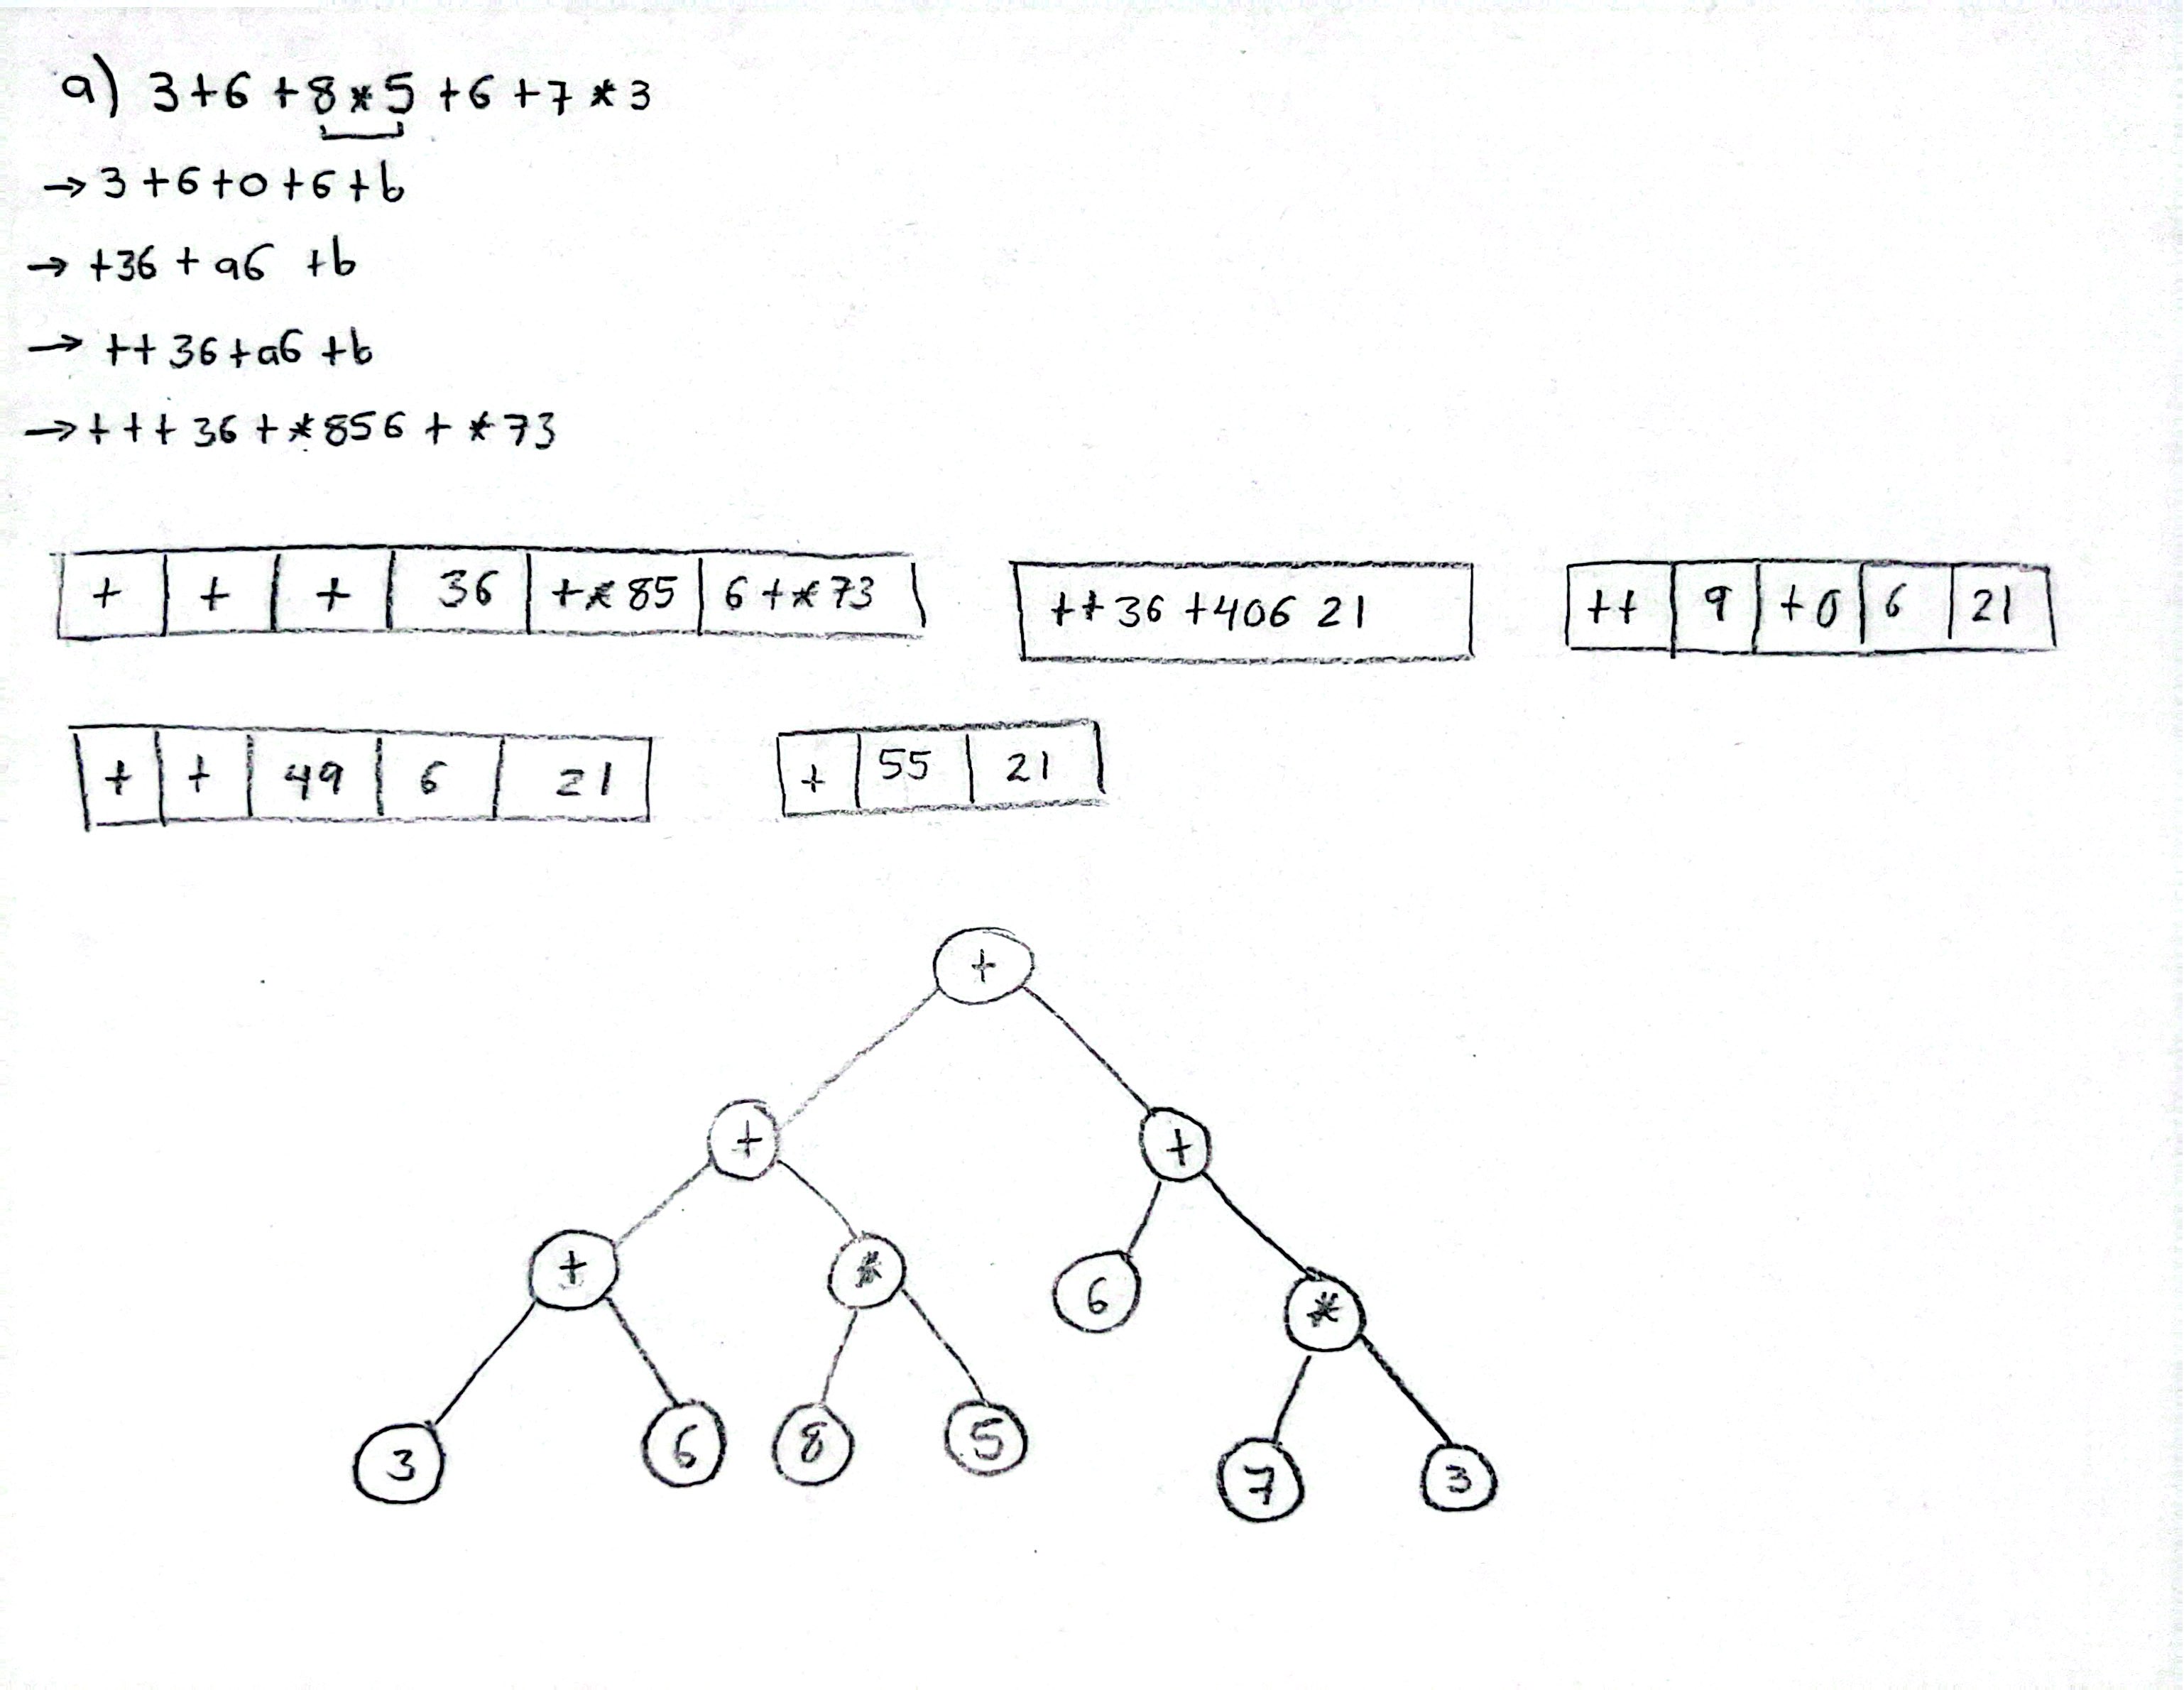 a) 3+6+8*5+6+7*3
→ 3+6+0+6+b
→ +36 + a6 +b
→ ++36+a6+b
→ +++36+*856+*73
+ + + 36 +*85 6+*73
++36 +406 21
++ 9 +0 6 21
+ + 49 6 21
+ 55 21
+
+ +
+ * 6 *
3 6 8 5 7 3